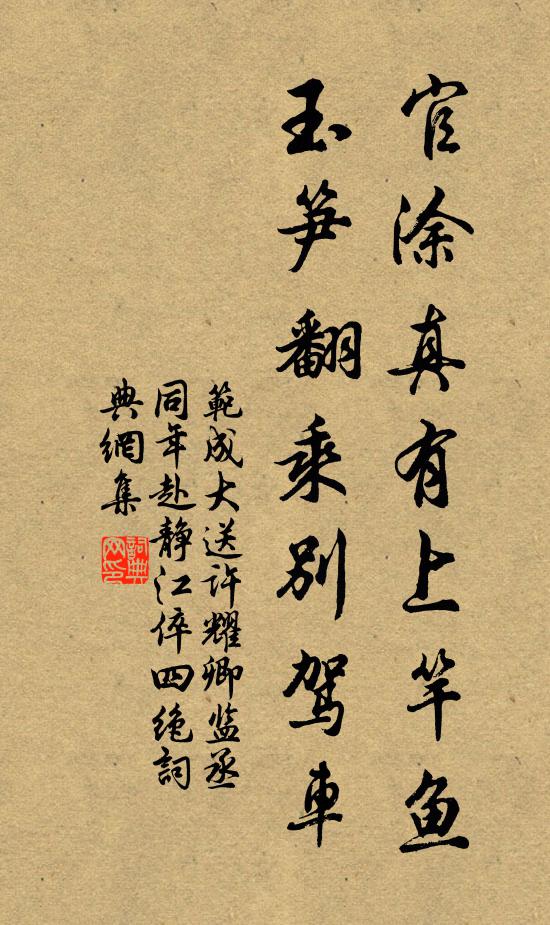 官涂真有上竿鱼
玉笋翻乘別駕車
範成大送许耀卿监丞
同年赴静江倅四绝詞
典網集
詞典
网印